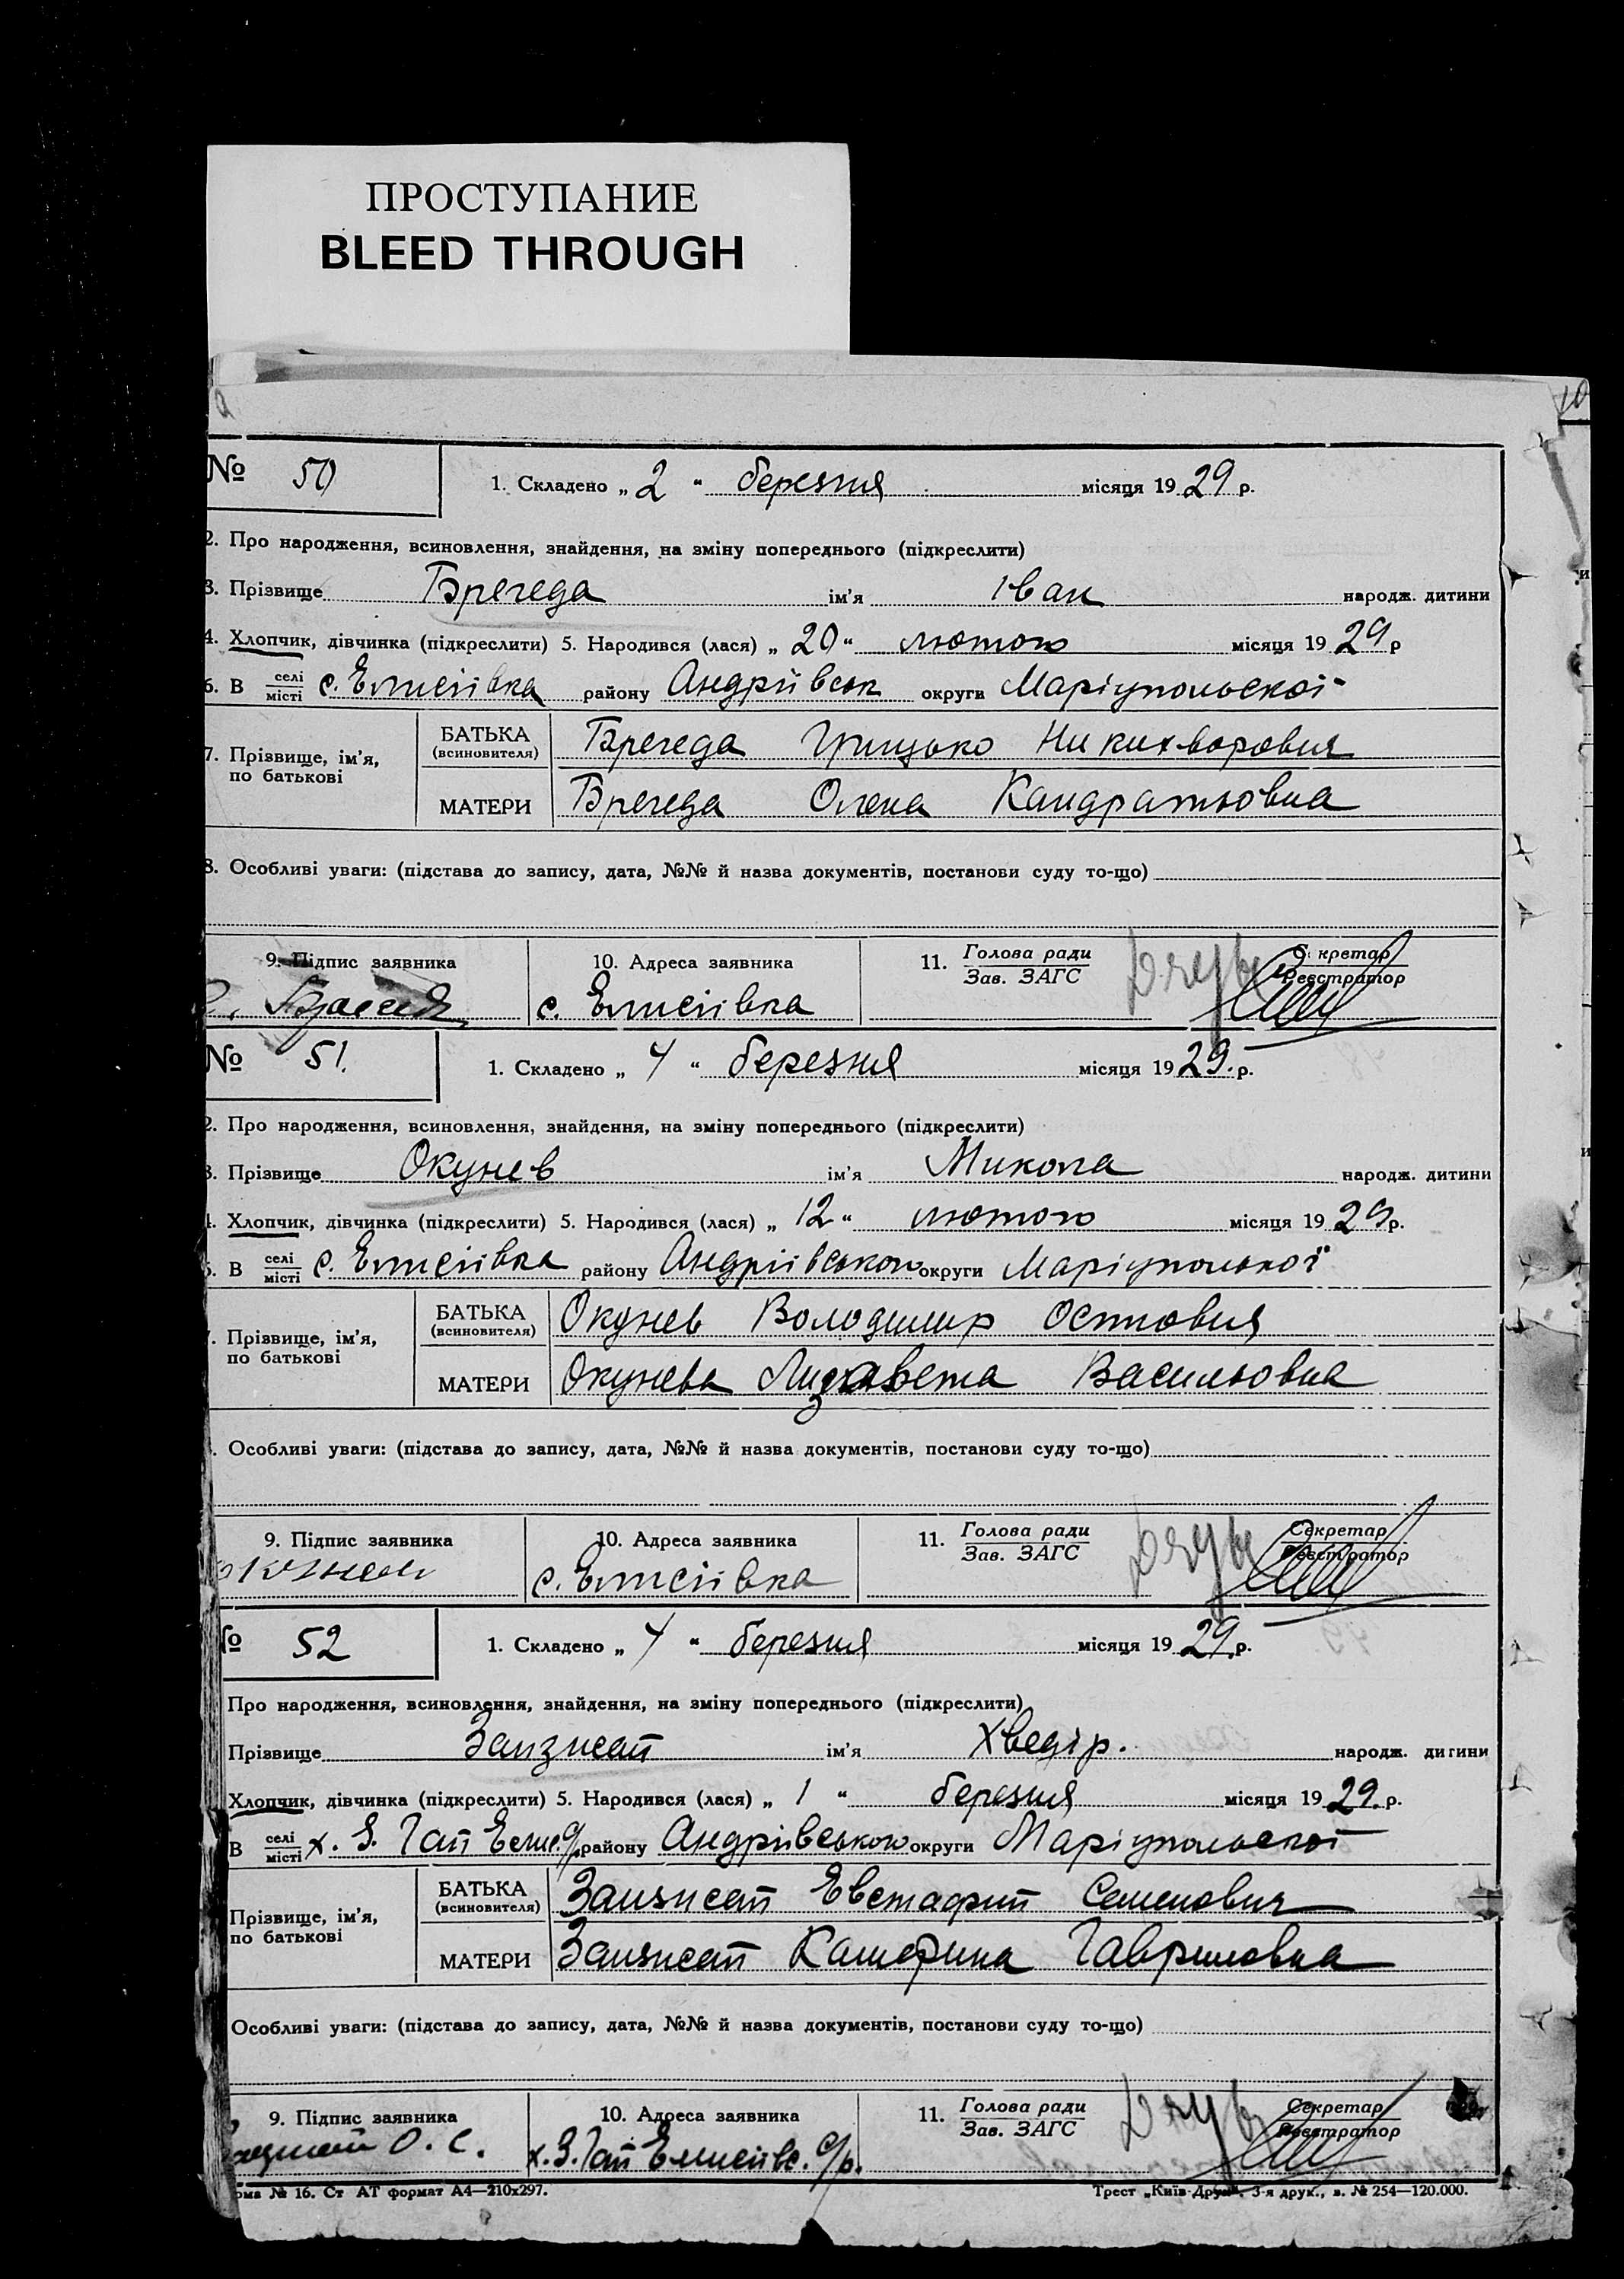 ПРОСТУПАНИЕ
BLEED THROUGH
№ 50 1. Складено „ 2 “ березня місяця 1929 р.
2. Про народження, всиновлення, знайдення, на зміну попереднього (підкреслити)
3. Прізвище Брегеда ім'я Іван народж. дитини
4. Хлопчик, дівчинка (підкреслити) 5. Народився (лася) „ 20 “ лютого місяця 1929 р
6. В селі місті с. Елисіївка району Андріївськ округи Маріупольської
7. Прізвище, ім'я, по батькові БАТЬКА (всиновителя) Брегеда Грицько Никихворович
МАТЕРИ Брегеда Олена Кандратювна
8. Особливі уваги: (підстава до запису, дата, №№ й назва документів, постанови суду то-що)
9. Підпис заявника 10. Адреса заявника 11. Голова ради Зав. ЗАГС Секретар Реєстратор
с. Елисіївка
№ 51. 1. Складено „ 4 “ березня місяця 1929. р.
2. Про народження, всиновлення, знайдення, на зміну попереднього (підкреслити)
3. Прізвище Окунев ім'я Микола народж. дитини
4. Хлопчик, дівчинка (підкреслити) 5. Народився (лася) „ 12 “ лютого місяця 1929 р.
6. В селі місті с. Елисіївка району Андріївського округи Маріупольської
7. Прізвище, ім'я, по батькові БАТЬКА (всиновителя) Окунев Володимир Остпович
МАТЕРИ Окунева Лизавета Васильовна
Особливі уваги: (підстава до запису, дата, №№ й назва документів, постанови суду то-що)
9. Підпис заявника 10. Адреса заявника 11. Голова ради Зав. ЗАГС Секретар Реєстратор
с. Елисіївка
№ 52 1. Складено „ 4 “ березня місяця 1929. р.
Про народження, всиновлення, знайдення, на зміну попереднього (підкреслити)
Прізвище ім'я Хведір. народж. дитини
Хлопчик, дівчинка (підкреслити) 5. Народився (лася) „ 1 “ березня місяця 1929. р.
В селі місті х. З. Гай Елис. с/р району Андріївського округи Маріупольської
Прізвище, ім'я, по батькові БАТЬКА (всиновителя) Евстафий Семенович
МАТЕРИ Катерина Гавриловна
Особливі уваги: (підстава до запису, дата, №№ й назва документів, постанови суду то-що)
9. Підпис заявника 10. Адреса заявника 11. Голова ради Зав. ЗАГС Секретар Реєстратор
О. С. х. З. Гай Елисіївс. с/р.
рма № 16. Ст АТ формат А4—210х297. Трест „Київ-Друк“, 3-я друк., з. № 254—120.000.